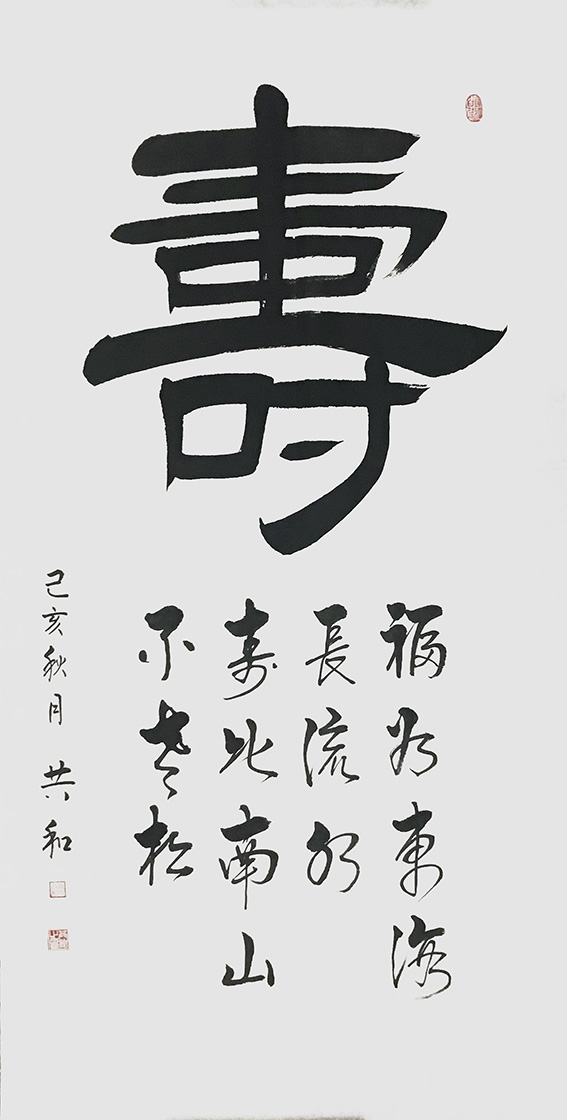 壽
福如東海
長流水
寿比南山
不老松
己亥秋月 共和